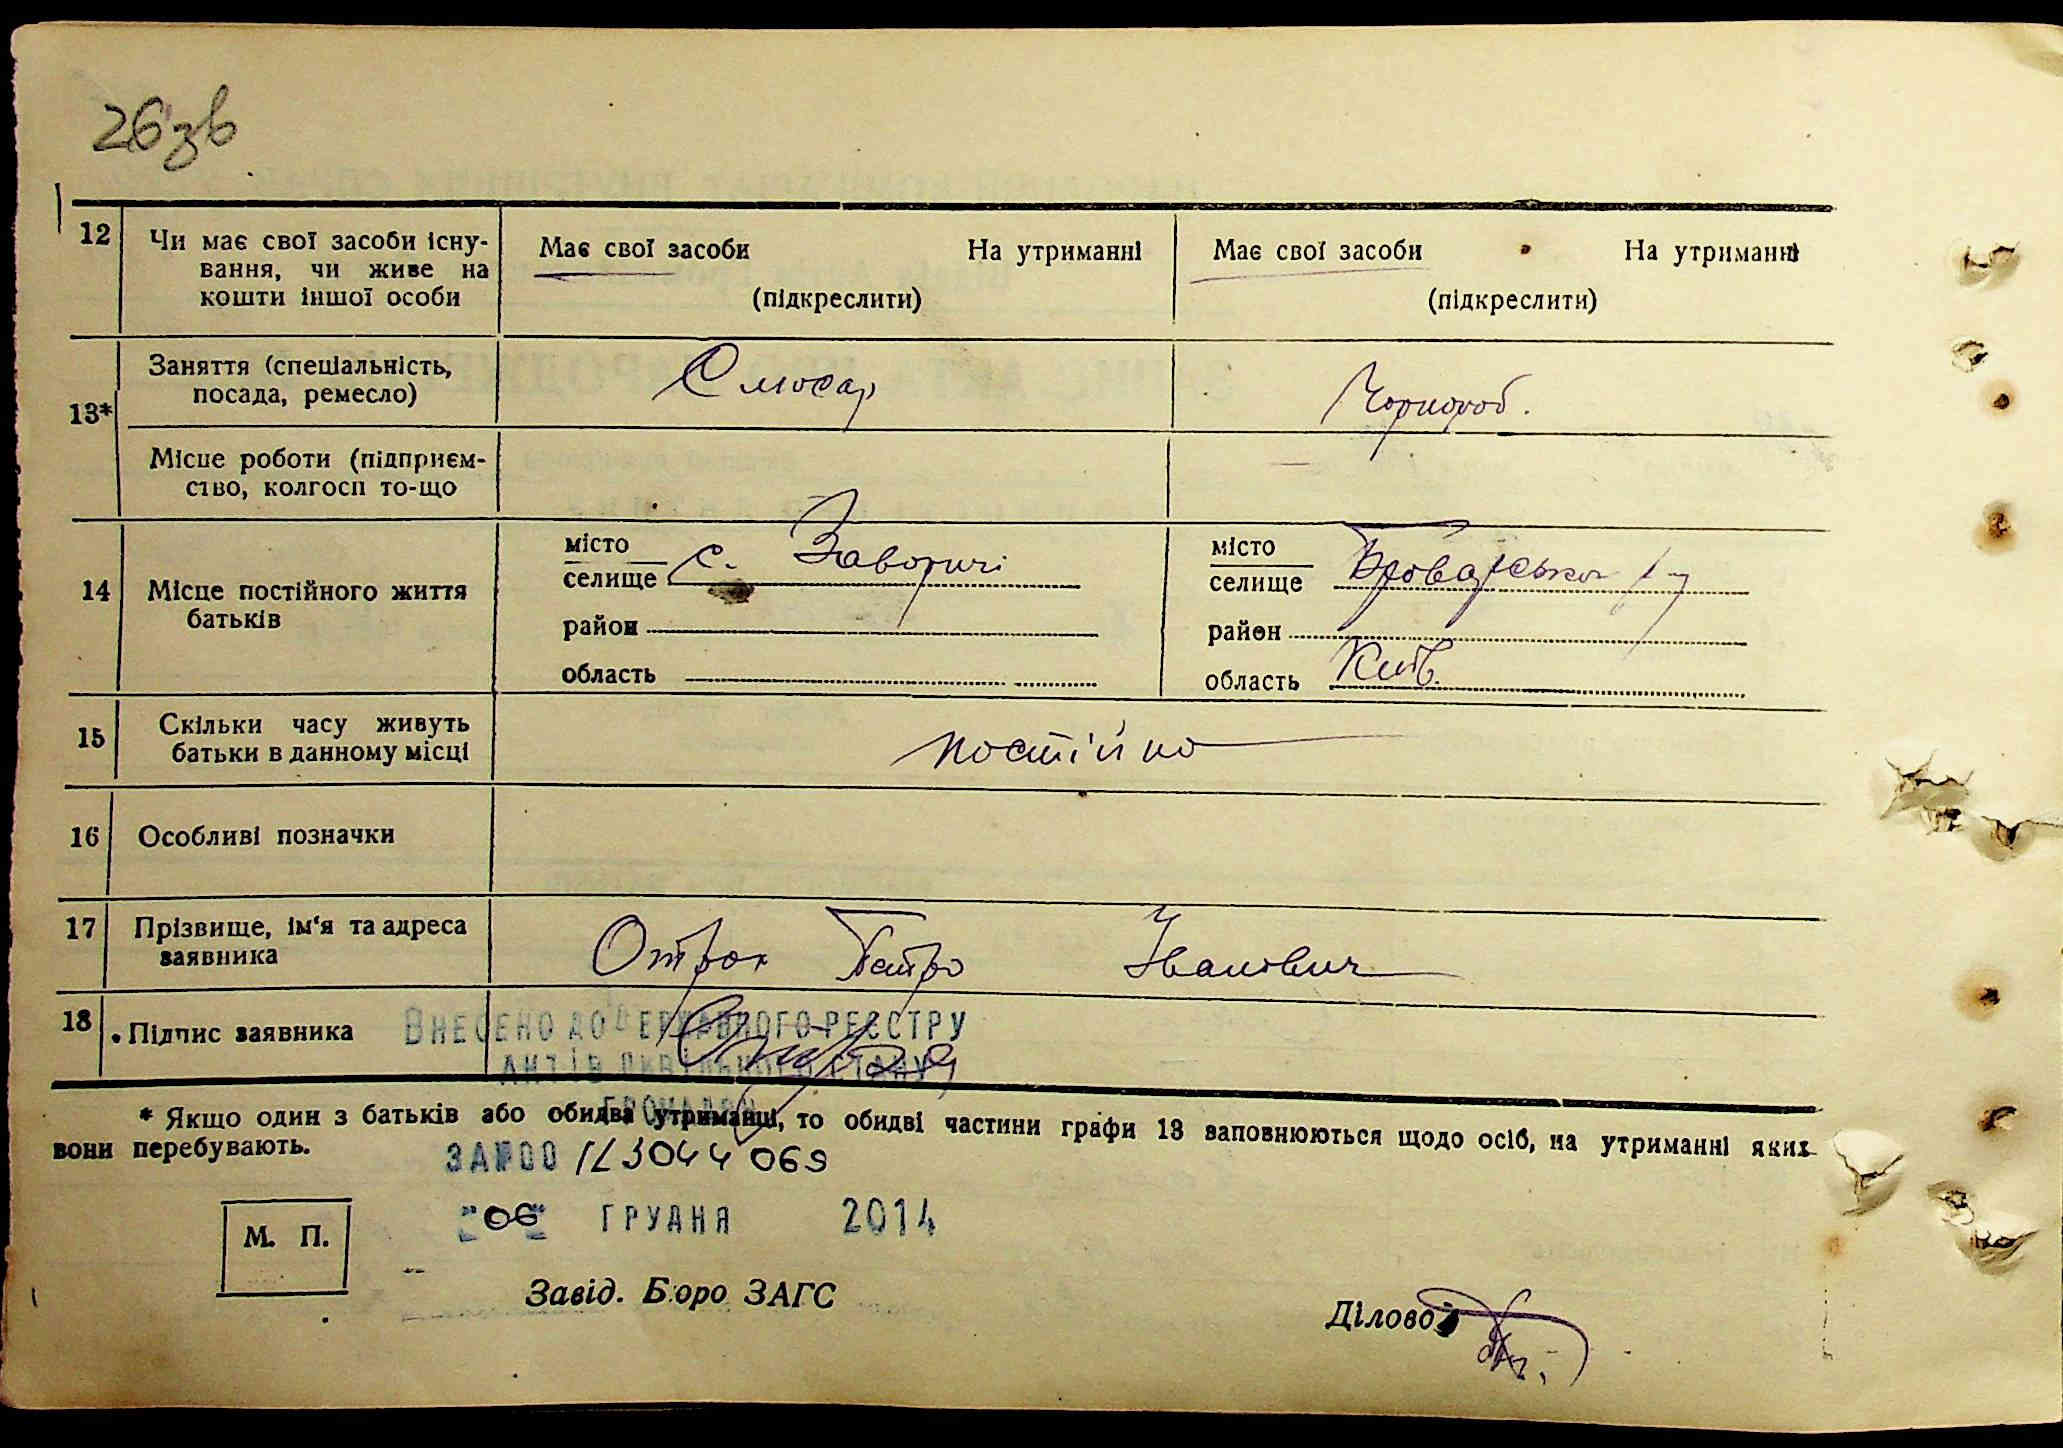 26зв
12 Чи має свої засоби існу-
вання, чи живе на
кошти іншої особи
Має свої засоби На утриманні
(підкреслити)
Має свої засоби На утриманні
(підкреслити)
13*
Заняття (спеціальність,
посада, ремесло)
Слюсар
Чорнороб.
Місце роботи (підприєм-
ство, колгосп то-що
14 Місце постійного життя
батьків
місто
селище с. Заворичі
район
область
місто
селище Броварського р-у
район
область Київ.
15 Скільки часу живуть
батьки в данному місці
постійно
16 Особливі позначки
17 Прізвище, ім'я та адреса
заявника
Отрох Петро Іванович
18 Підпис заявника
ВНЕСЕНО ДО ДЕРЖАВНОГО РЕЄСТРУ
АКТІВ ЦИВІЛЬНОГО СТАНУ
ГРОМАДЯН
* Якщо один з батьків або обидва утриманці, то обидві частини графи 13 заповнюються щодо осіб, на утриманні яких
вони перебувають.
ЗА №00 123044069
"06" ГРУДНЯ 2014
М. П.
Завід. Бюро ЗАГС
Діловод